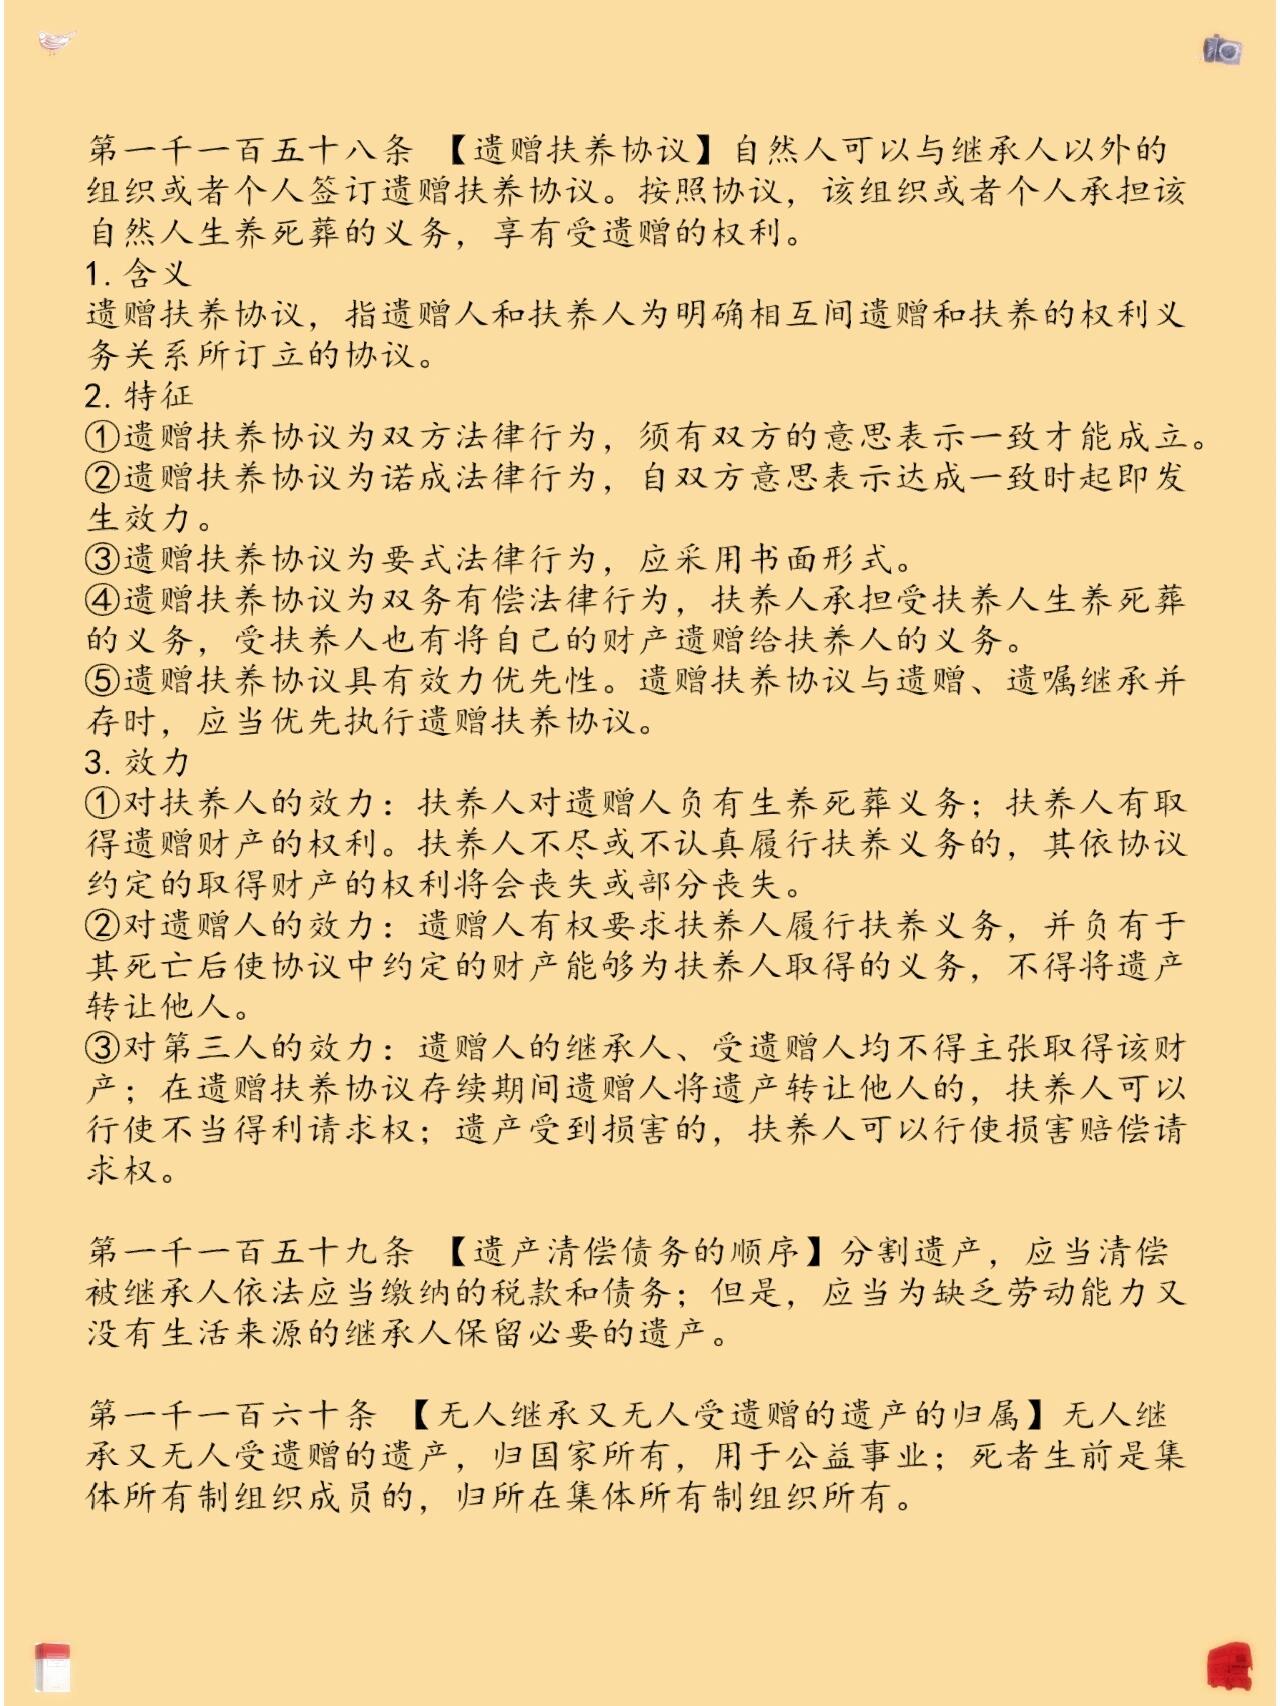 第一千一百五十八条 【遗赠扶养协议】自然人可以与继承人以外的
组织或者个人签订遗赠扶养协议。按照协议，该组织或者个人承担该
自然人生养死葬的义务，享有受遗赠的权利。
1. 含义
遗赠扶养协议，指遗赠人和扶养人为明确相互间遗赠和扶养的权利义
务关系所订立的协议。
2. 特征
①遗赠扶养协议为双方法律行为，须有双方的意思表示一致才能成立。
②遗赠扶养协议为诺成法律行为，自双方意思表示达成一致时起即发
生效力。
③遗赠扶养协议为要式法律行为，应采用书面形式。
④遗赠扶养协议为双务有偿法律行为，扶养人承担受扶养人生养死葬
的义务，受扶养人也有将自己的财产遗赠给扶养人的义务。
⑤遗赠扶养协议具有效力优先性。遗赠扶养协议与遗赠、遗嘱继承并
存时，应当优先执行遗赠扶养协议。
3. 效力
①对扶养人的效力：扶养人对遗赠人负有生养死葬义务；扶养人有取
得遗赠财产的权利。扶养人不尽或不认真履行扶养义务的，其依协议
约定的取得财产的权利将会丧失或部分丧失。
②对遗赠人的效力：遗赠人有权要求扶养人履行扶养义务，并负有于
其死亡后使协议中约定的财产能够为扶养人取得的义务，不得将遗产
转让他人。
③对第三人的效力：遗赠人的继承人、受遗赠人均不得主张取得该财
产；在遗赠扶养协议存续期间遗赠人将遗产转让他人的，扶养人可以
行使不当得利请求权；遗产受到损害的，扶养人可以行使损害赔偿请
求权。
第一千一百五十九条 【遗产清偿债务的顺序】分割遗产，应当清偿
被继承人依法应当缴纳的税款和债务；但是，应当为缺乏劳动能力又
没有生活来源的继承人保留必要的遗产。
第一千一百六十条 【无人继承又无人受遗赠的遗产的归属】无人继
承又无人受遗赠的遗产，归国家所有，用于公益事业；死者生前是集
体所有制组织成员的，归所在集体所有制组织所有。